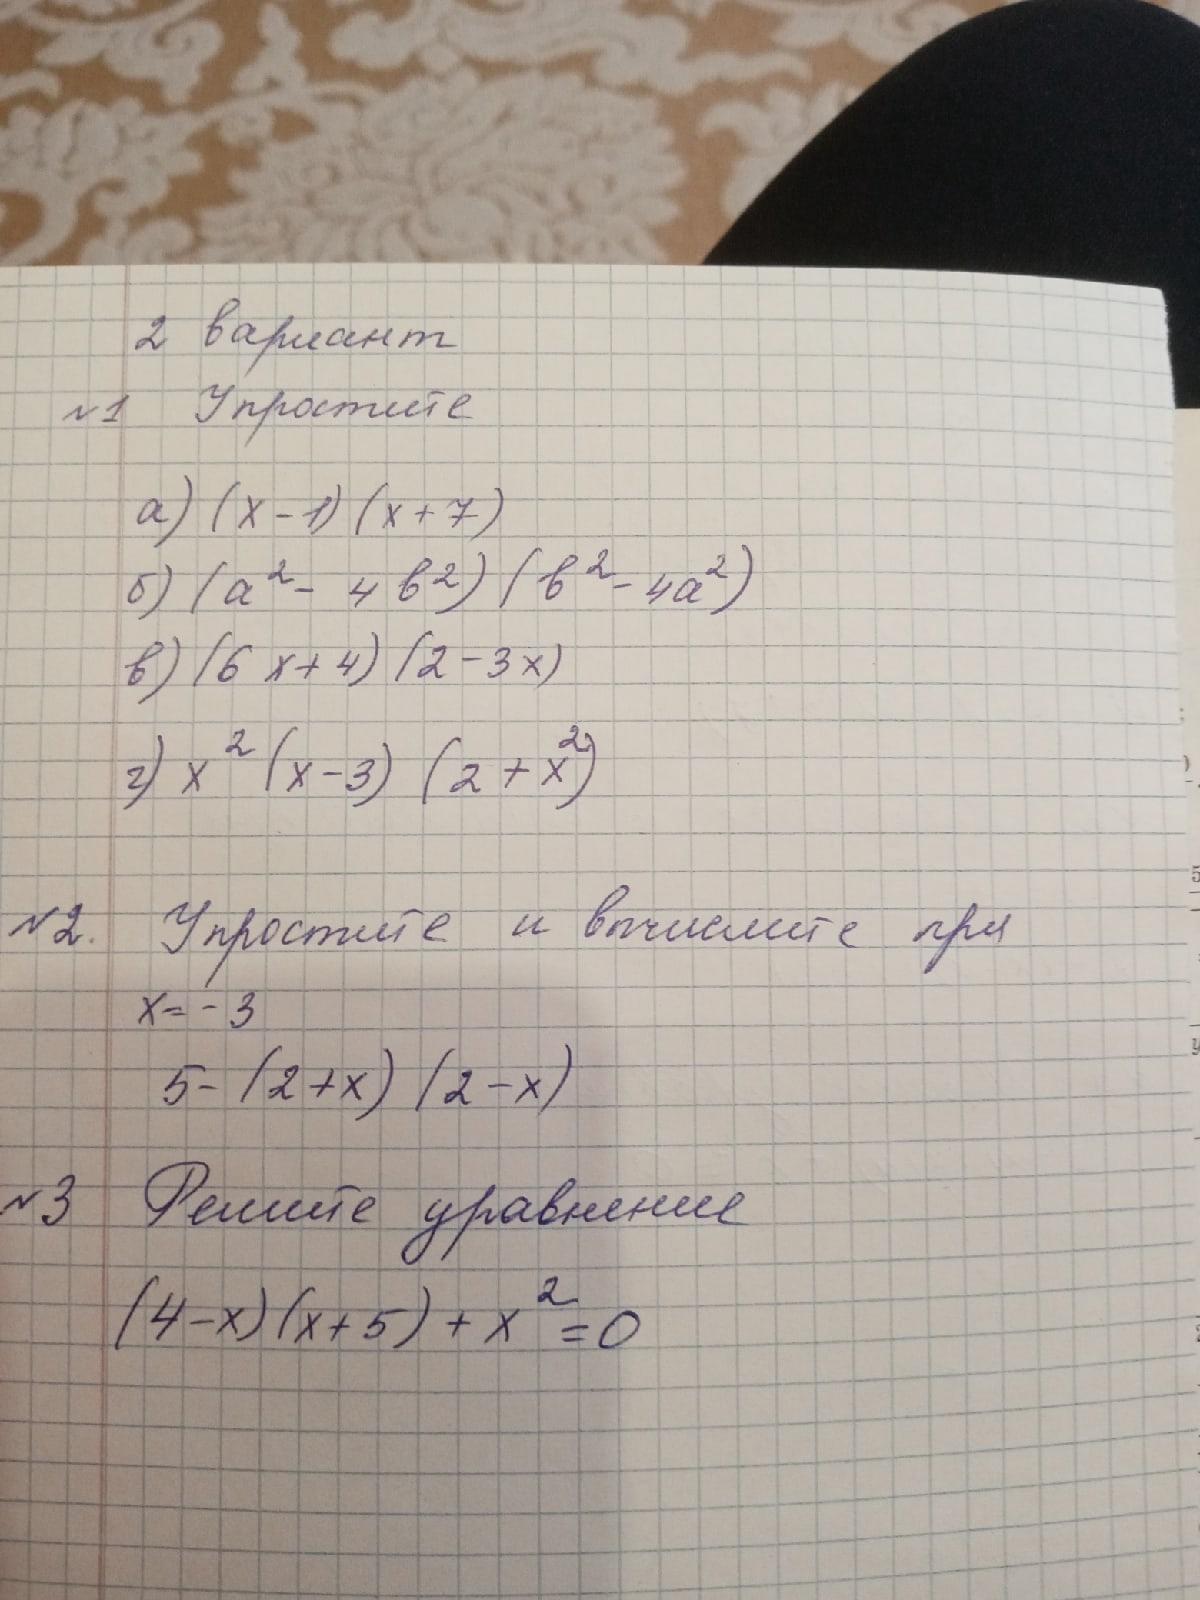 2 вариант
№1 Упростите
а) (x-1) (x+7)
б) (a² - 4b²) (b² - 4a²)
в) (6x+4) (2-3x)
г) x² (x-3) (2+x²)
№2. Упростите и вычислите при
x = -3
5- (2+x) (2-x)
№3 Решите уравнение
(4-x) (x+5) + x² = 0